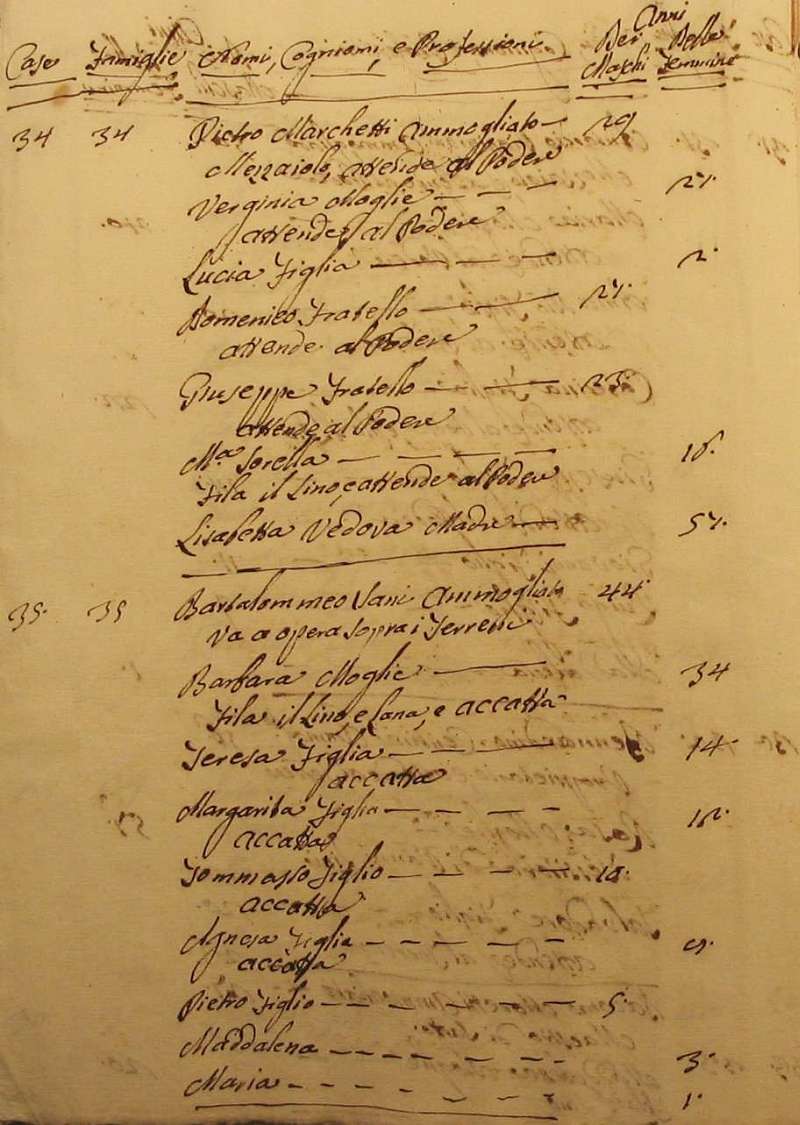 Anni
Case Famiglie Nomi, Cognomi, e Professioni Dei Maschi Delle Femmine
34 34 Pietro Marchetti Ammogliato — 29
Mezzaiolo, attende al Podere
Verginia Moglie — — —
attende al Podere
Lucia Figlia — — — 2.
Domenico Fratello — —
attende al Podere
Giuseppe Fratello — — — 23.
attende al Podere
M.a Sorella — — — —
Fila il Lino, e attende al Podere
Lisabetta Vedova Madre —
35. 35 Bartolommeo Sani Ammogliato 44.
va a opera sopra i Terreni
Barbara Moglie — — 34
Fila il Lino, e Lana, e accatta
Teresa Figlia — — — 14.
accatta
Margarita Figlia — — — —
accatta
Tommasso Figlio — — — —
accatta
Agnesa Figlia — — — —
accatta
Pietro Figlio — — — — — 5.
Maddalena — — — — — 3.
Maria — — — — — 1.